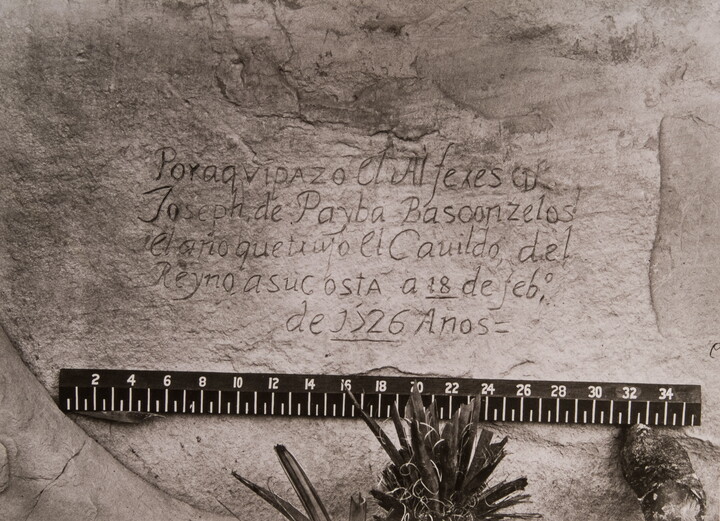 Poraquipazo el Alferes Dn
Joseph de Payba Basconzelos
el año que trujo el Cauildo, del
Reyno, a su costa a 18 de feb.º
de 1526 Años=
2 4 6 8 10 12 14 16 18 20 22 24 26 28 30 32 34